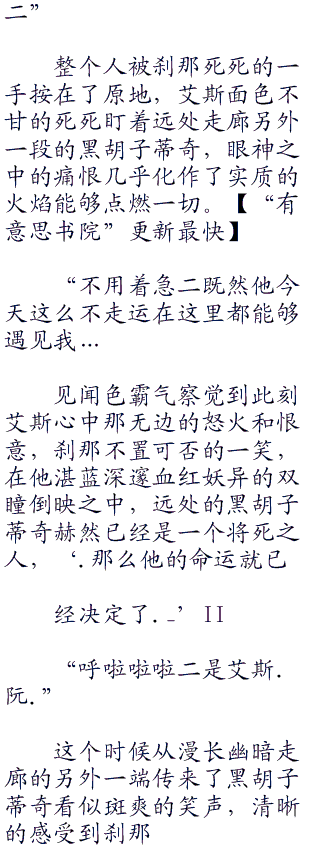 二”
整个人被刹那死死的一
手按在了原地，艾斯面色不
甘的死死盯着远处走廊另外
一段的黑胡子蒂奇，眼神之
中的痛恨几乎化作了实质的
火焰能够点燃一切。【“有
意思书院”更新最快】
“不用着急二既然他今
天这么不走运在这里都能够
遇见我...
见闻色霸气察觉到此刻
艾斯心中那无边的怒火和恨
意，刹那不置可否的一笑，
在他湛蓝深邃血红妖异的双
瞳倒映之中，远处的黑胡子
蒂奇赫然已经是一个将死之
人，‘.那么他的命运就已
经决定了._’II
“呼啦啦啦二是艾斯.
阮.”
这个时候从漫长幽暗走
廊的另外一端传来了黑胡子
蒂奇看似斑爽的笑声，清晰
的感受到刹那